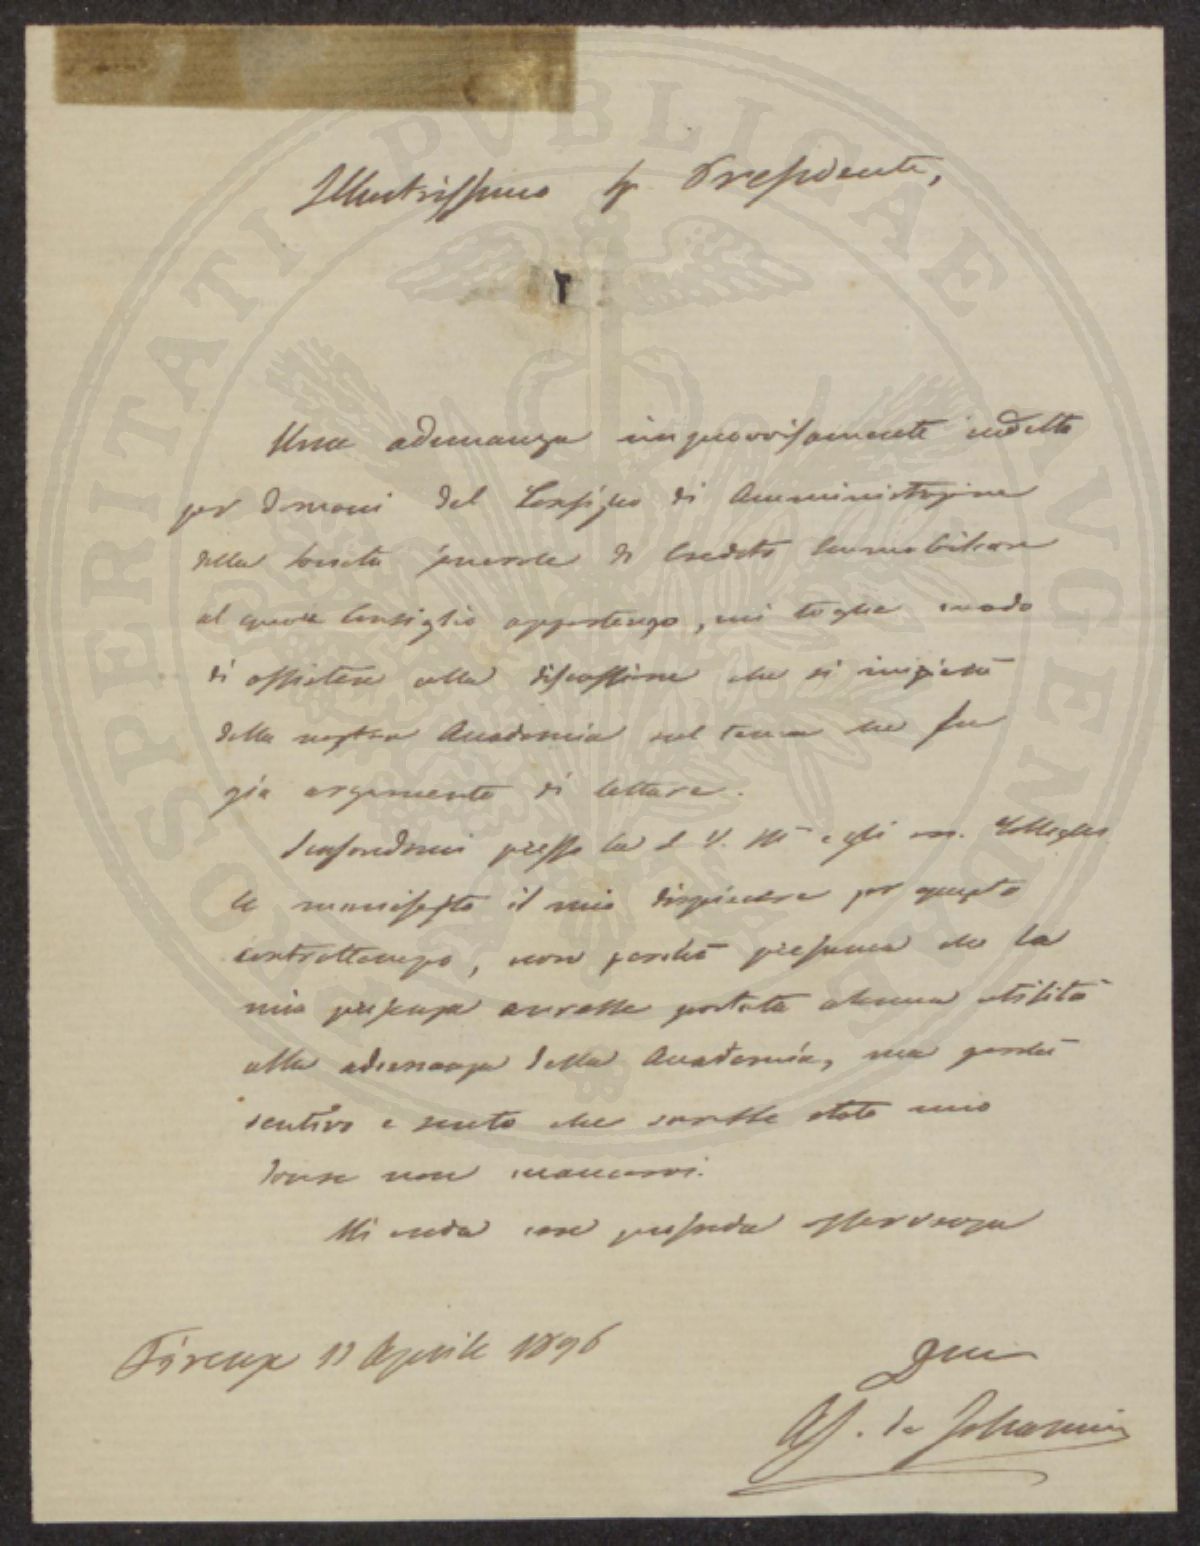 PROSPERITATI PVBLICAE AVGENDAE
Illustrissimo Sr Presidente,
Una adunanza improvvisamente indetta
per domani del Consiglio di Amministrazione
della Società generale di Credito Immobiliare
al quale Consiglio appartengo, mi toglie modo
di assistere alla discussione che si inizierà
della nostra Accademia sul tema che fu
già argomento di letture.
presso la S. V. Ill e gli on. Colleghi
le manifesto il mio dispiacere per questo
contrattempo, non perchè presuma che la
mia presenza avrebbe portata alcuna utilità
alla adunanza della Accademia, ma perchè
sentivo e sento che sarebbe stato mio
dovere non mancarvi.
Mi creda con profonda osservanza
Firenze 11 Aprile 1896
Devmo
A J. de Johannis